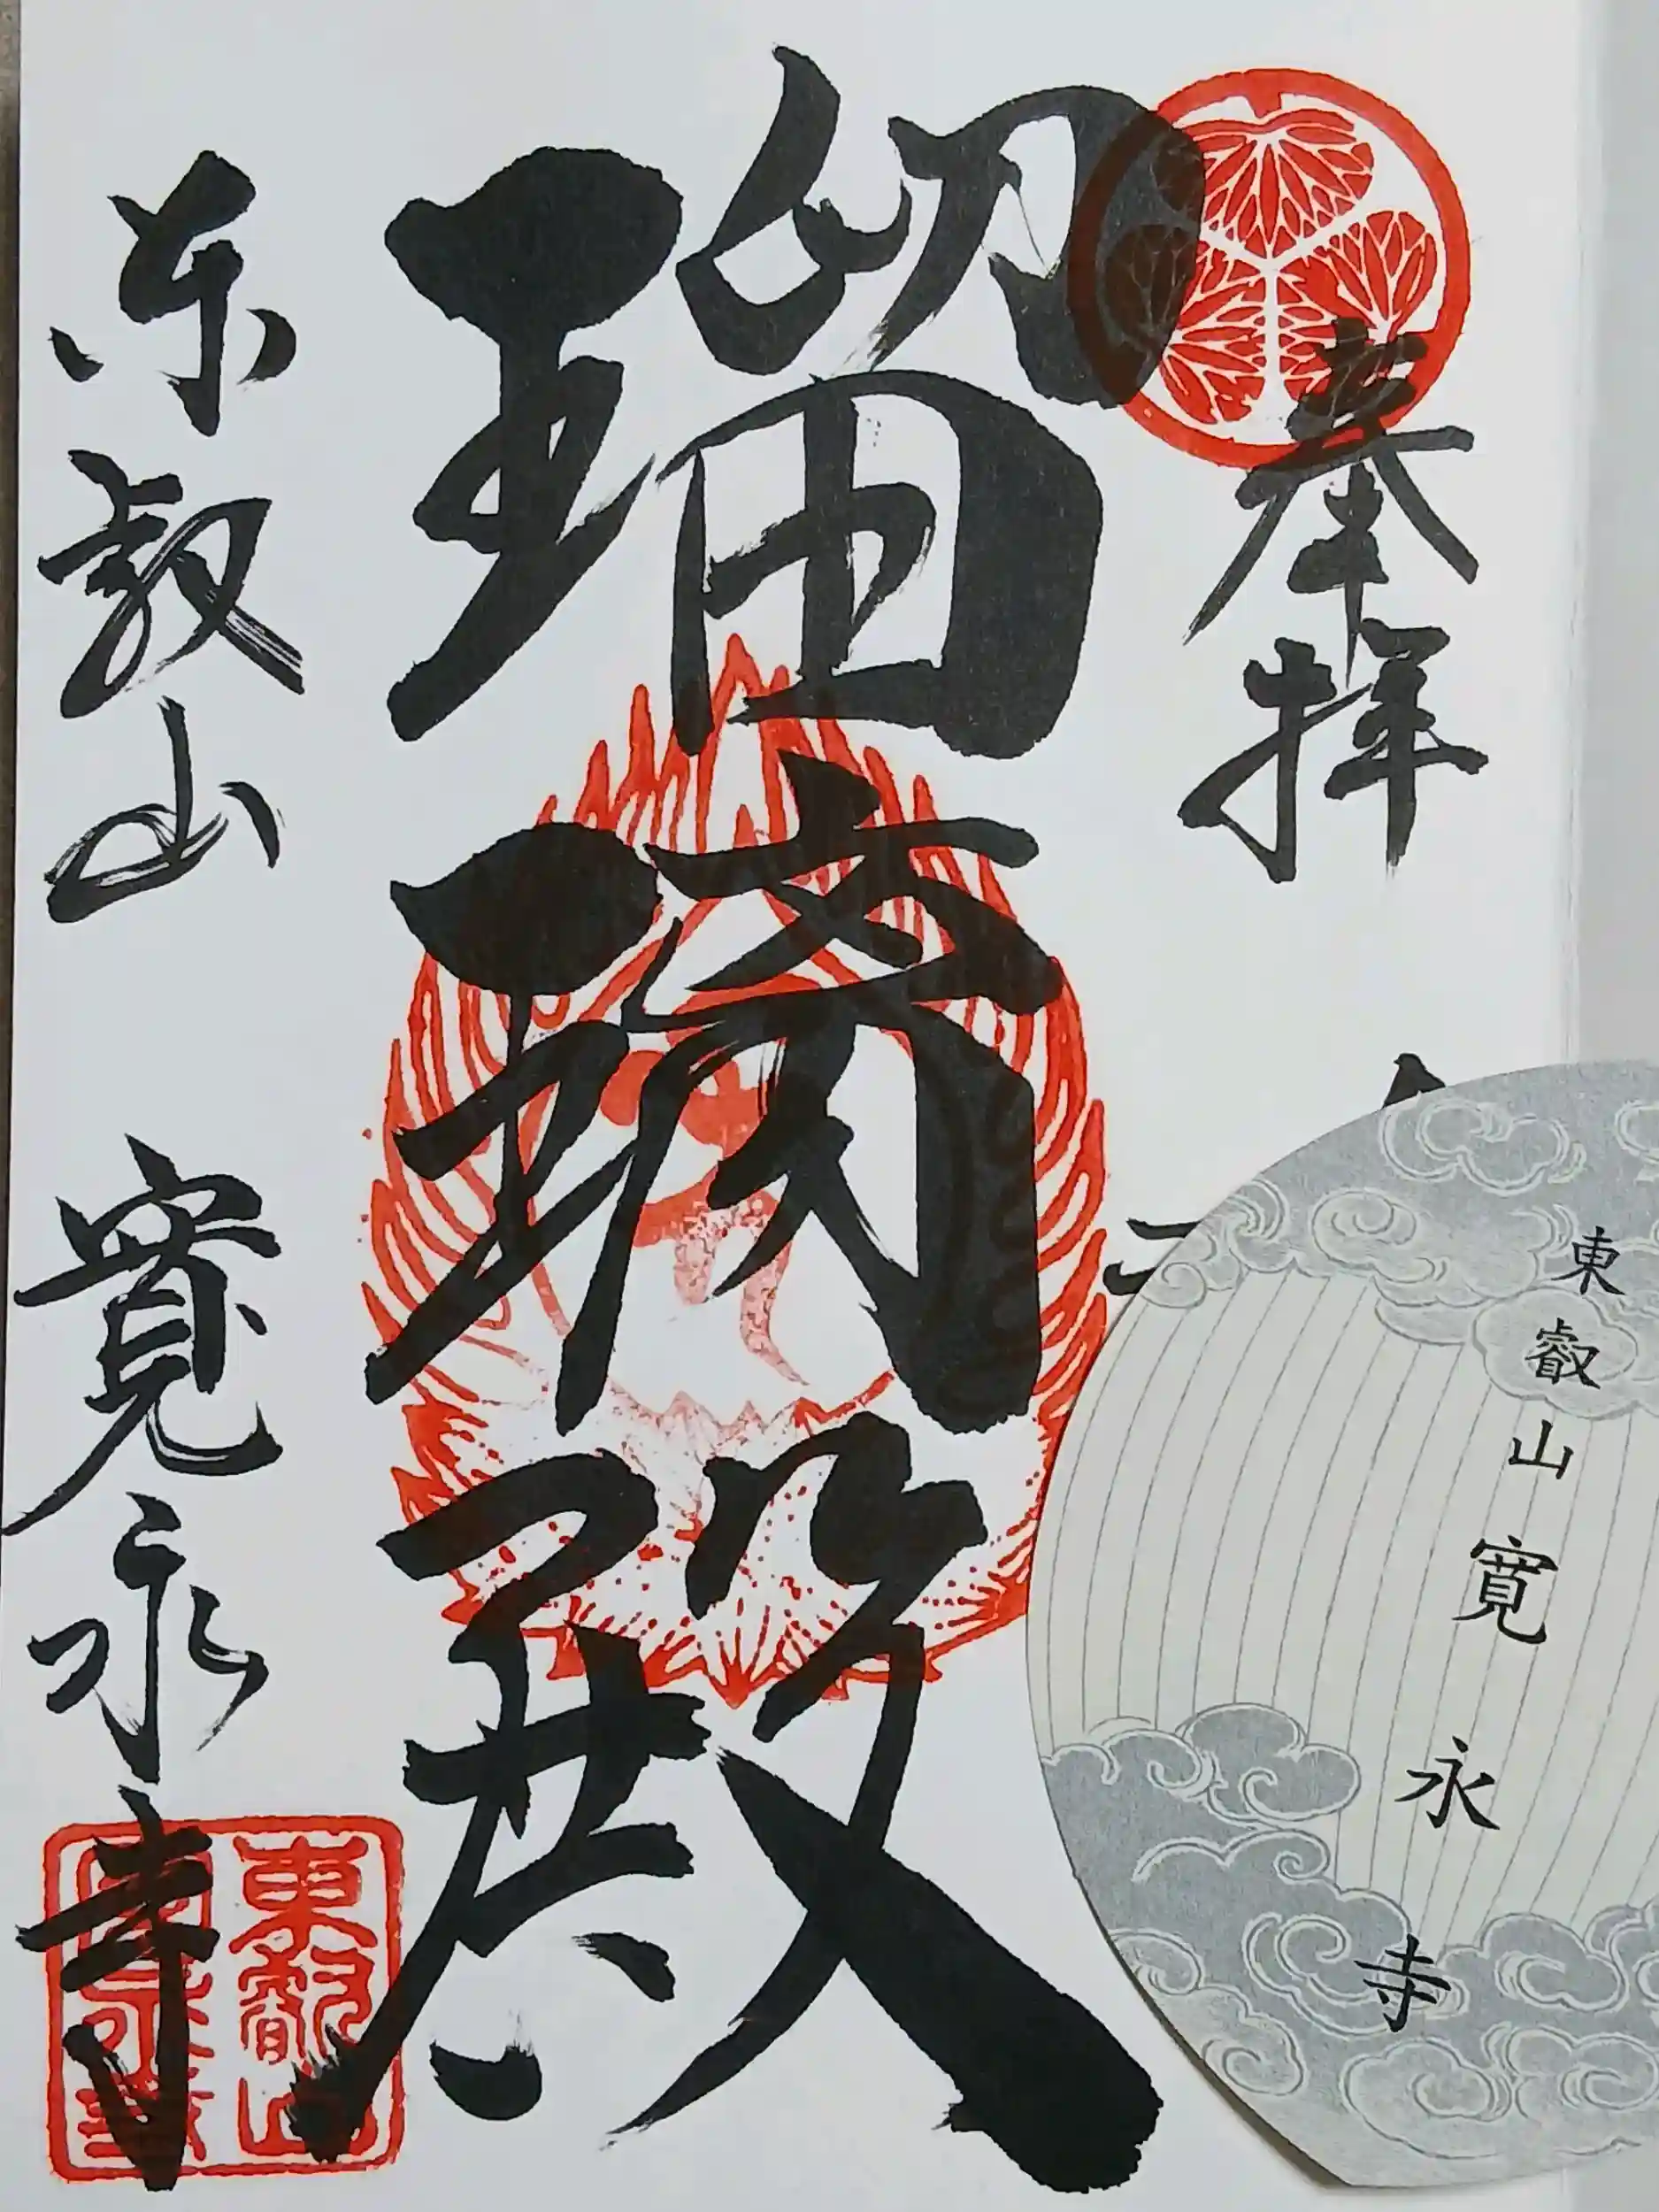 奉拝
瑠璃殿
東叡山 寛永寺
東叡山
寛永寺
東叡山寛永寺